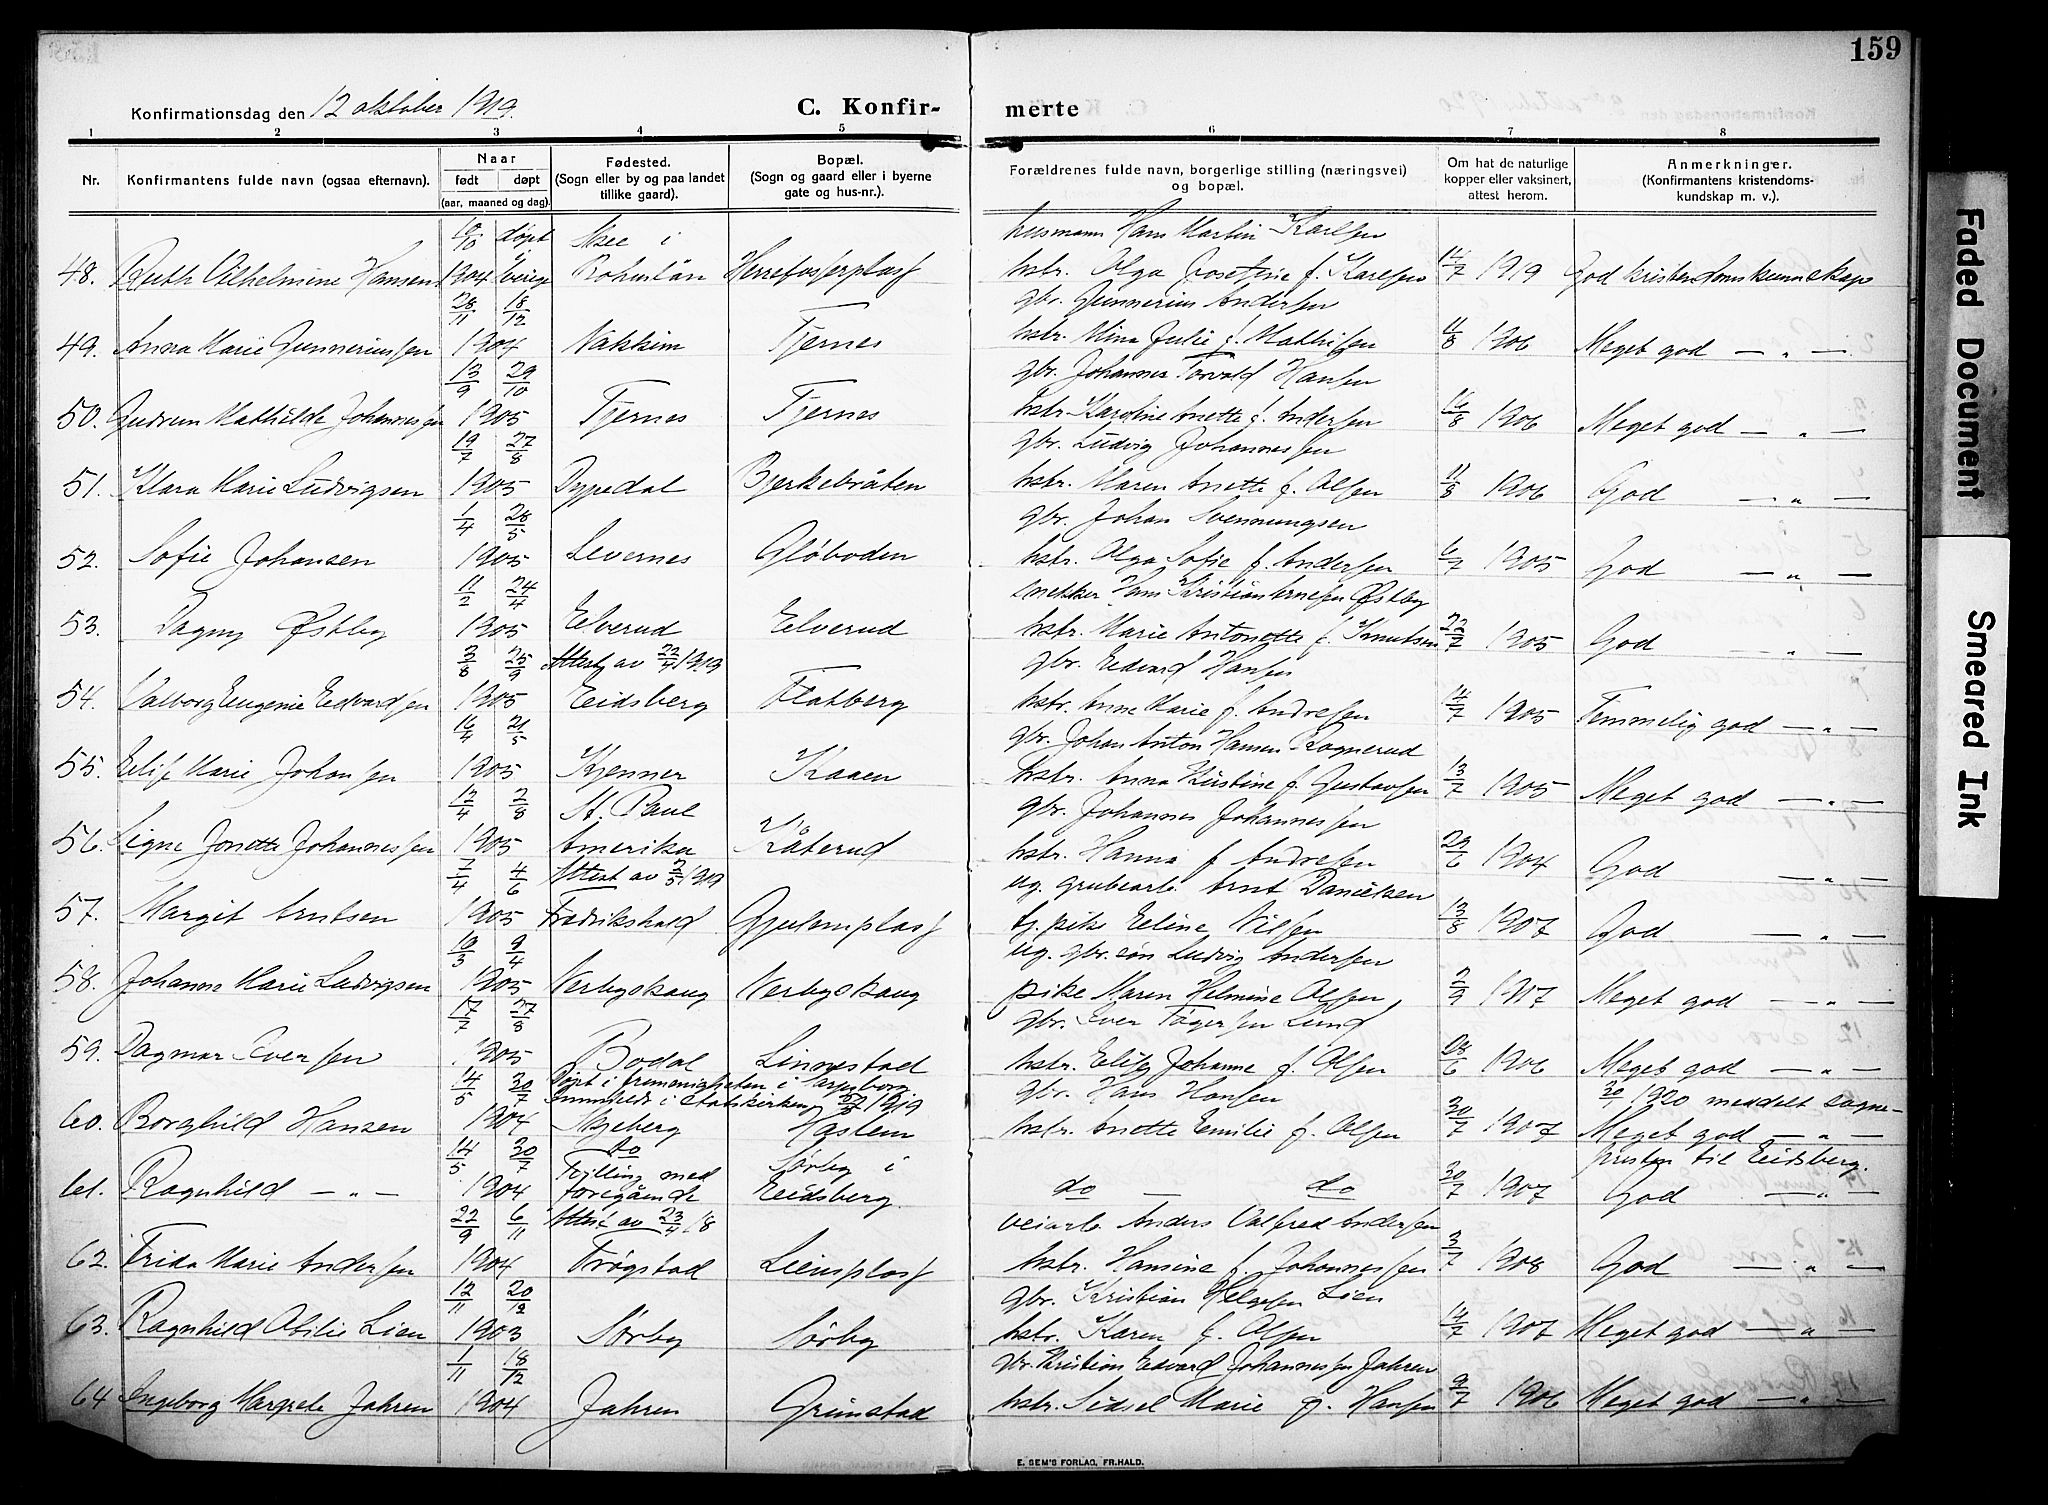 159
Konfirmationsdag den 12 oktober 1919.
C. Konfir- merte
1 2 3 4 5 6 7 8
Nr. Konfirmantens fulde navn (ogsaa efternavn). Naar født døpt (aar, maaned og dag). Fødested. (Sogn eller by og paa landet tillike gaard). Bopæl. (Sogn og gaard eller i byerne gate og hus-nr.). Forældrenes fulde navn, borgerlige stilling (næringsvei) og bopæl. Om hat de naturlige kopper eller vaksinert, attest herom. Anmerkninger. (Konfirmantens kristendoms- kundskap m. v.).
10/10 døpt i Skee i husmann Hans Martin Karlsen
48. Ruth Vilhelmine Hansen 1904 Sverige Bohuslän Herrefosserplass hstr. Olga Josefine f. Karlsen 14/7 1919 God kristendomskunnskap
28/11 18/12 gbr. Gunnerius Andersen
49. Anna Marie Gunneriussen 1904 Nakkim Tjernes hstr. Mina Julie f. Mathisen 11/8 1906 Meget god — „ —
13/9 29/10 gbr. Johannes Torvald Hansen
50. Gudrun Mathilde Johannessen 1905 Tjernes Tjernes hstr. Karoline Anette f. Andersen 16/8 1906 Meget god — „ —
19/7 27/8 gbr. Ludvig Johannessen
51. Klara Marie Ludvigsen 1905 Dypedal Bjerkebråten hstr. Maren Anette f. Olsen 11/8 1906 God — „ —
1/4 28/5 gbr. Johan Svennungsen
52. Sofie Johansen 1905 Levernes Glöboden hstr. Olga Sofie f. Andersen 6/7 1905 God — „ —
11/2 24/4 snekker Hans Kristian Arnesen Østby
53. Dagny Østby 1905 Elverud Elverud hstr. Marie Antonette f. Knutsen 22/7 1905 God — „ —
3/8 25/9 Attest av 22/4 1919 gbr. Edvard Hansen
54. Valborg Eugenie Edvardsen 1905 Eidsberg Flatberg hstr. Anne Marie f. Andresen 14/7 1905 Temmelig god — „ —
16/4 21/5 gbr. Johan Anton Hansen Rognerud
55. Elise Marie Johansen 1905 Kjenner Kaaen hstr. Anna Kristine f. Gustavsen 13/7 1905 Meget god — „ —
12/4 2/8 St. Paul gbr. Johannes Johannessen
56. Signe Jonette Johannessen 1905 Amerika Kåterud hstr. Hanna f. Andresen 29/6 1904 God — „ —
7/4 4/6 Attest av 2/5 1919 ug. grubearb. Arnt Danielsen
57. Margit Arntsen 1905 Fredrikshald Gjulemplass tj. pike Eline Nilsen 13/8 1907 God — „ —
19/3 9/4 ug. gbr. søn Ludvig Andersen
58. Johanne Marie Ludvigsen 1905 Nerbyskaug Nerbyskaug pike Maren Helmine Olsen 2/9 1917 Meget god — „ —
17/7 27/8 gbr. Iver Tøgersen Lund
59. Dagmar Iversen 1905 Bodal Linnestad hstr. Elise Johanne f. Olsen 28/6 1906 Meget god — „ —
14/5 30/7 Døpt i frimenigheten i Sarpsborg gbr. Hans Hansen 30/1 1920 meddelt sogne-
innmeldt i statskirken 1919
60. Borghild Hansen 1904 Skjeberg Haslem hstr. Anette Emilie f. Olsen 30/7 1907 Meget god — „ —
14/5 30/7 do Tvilling med Sørby i presten til Eidsberg.
61. Ragnhild — „ — 1904 foregående Eidsberg. do — do 30/7 1907 God — „ —
22/9 6/11 Attest av 23/4 18 veiarb. Anders Valfred Andersen
62. Frida Marie Andersen 1904 Trøgstad Liensplass hstr. Hansine f. Johannessen 3/7 1908 God — „ —
12/11 20/12 gbr. Kristian Helgesen Lien
63. Ragnhild Otilie Lien 1903 Sørby Sørby hstr. Karen f. Olsen 14/7 1907 Meget god — „ —
1/11 18/12 gbr. Kristian Edvard Johannessen Jahren
64 Ingeborg Margrete Jahren 1904 Jahren Grimstad hstr. Sidsel Marie f. Hansen 9/7 1906 Meget god — „ —
E. SEM'S FORLAG, FR.HALD.
Faded Document
Smeared Ink